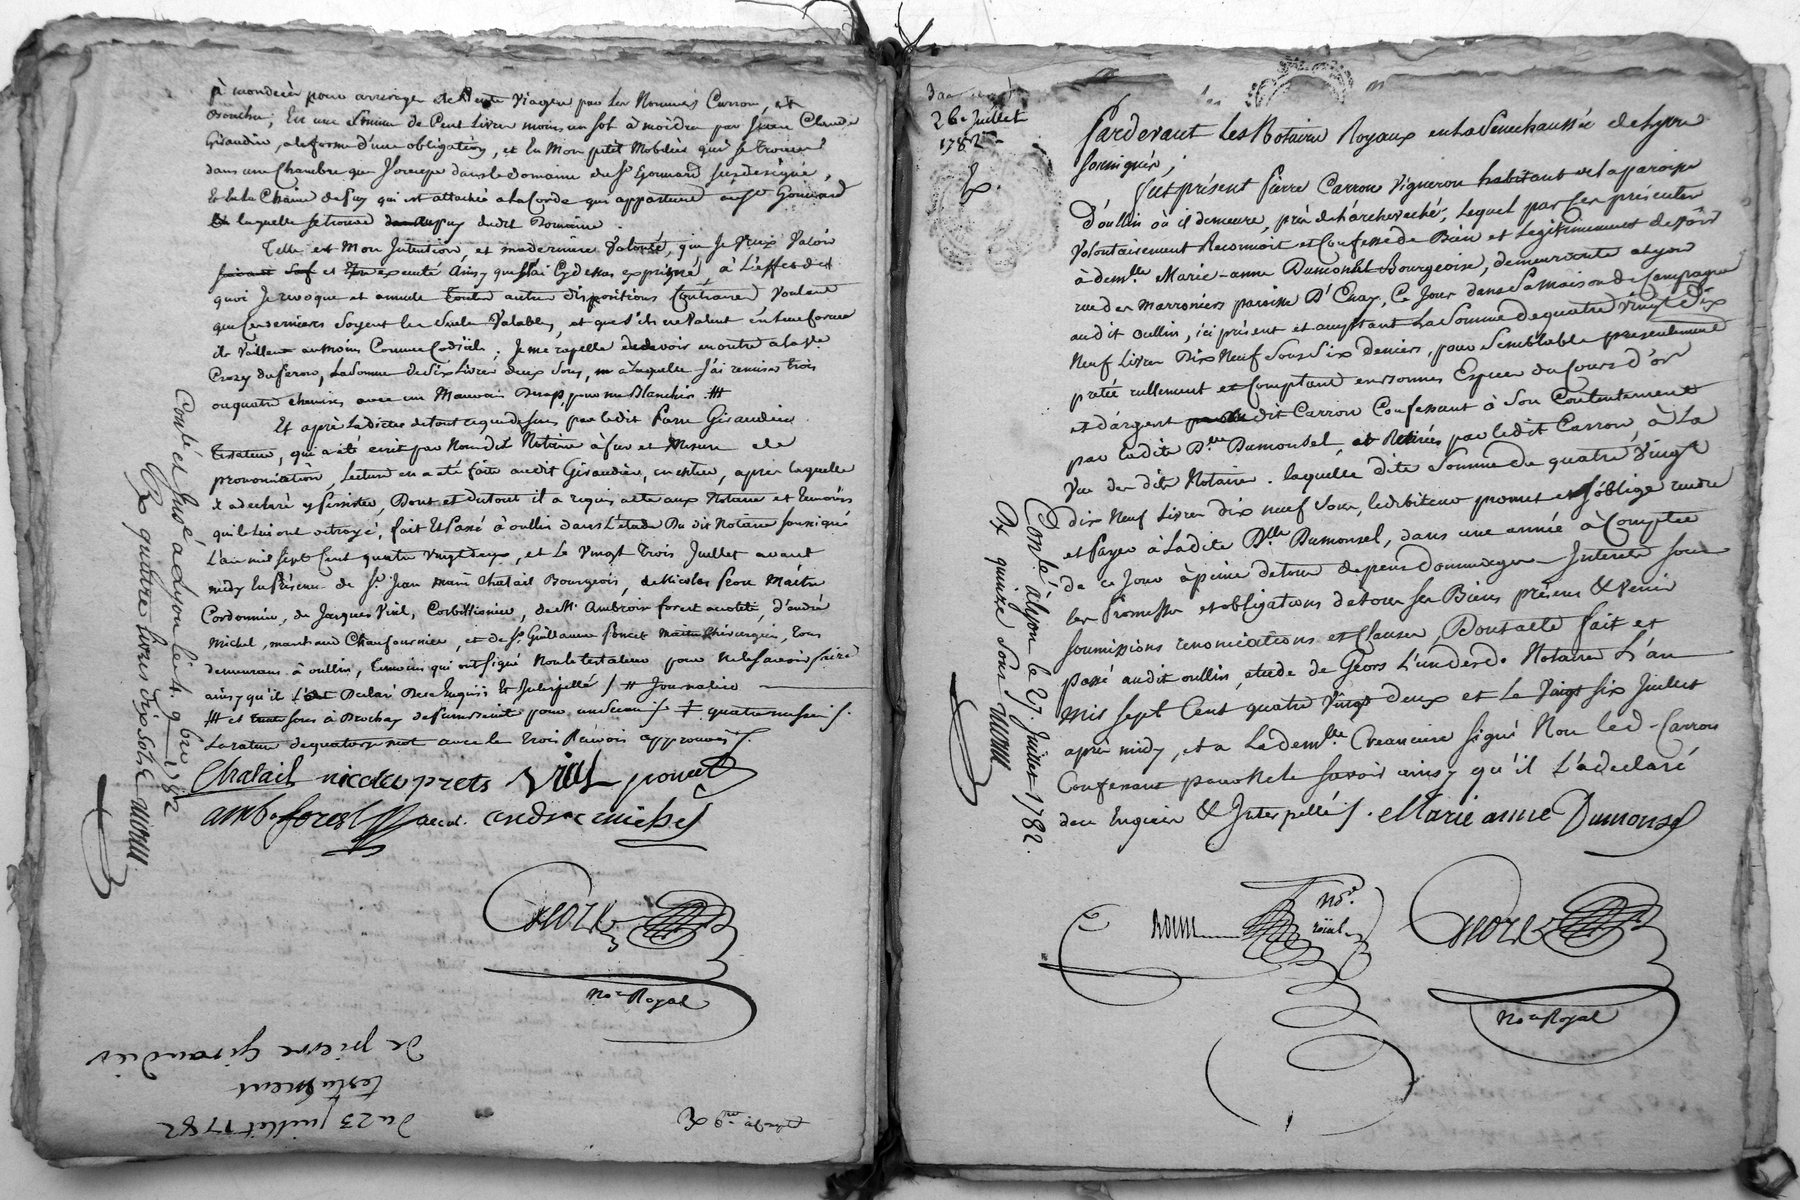 à mondecès pour arrerages de Rente Viagere par les Nommés Carron, et
Bouchu, En une Somme de Cent Livres moins un sol à moi due par Jean Claude
Giraudin, a la forme d'une obligation, et En Mon petit Mobilier qui se trouve
dans une Chambre que J'occupe dans le domaine du Sr. Gonnard susdésigné,
Et En la Chaine de fer qui est attachée a la Corde qui appartient au Sr. Gonnard
à laquelle se trouve puy dudit Domaine
Telle est Mon Intention, et ma derniere Volonté, que Je Veux Valoir
et executé Ainsy que J'ai Cydessus exprimé, à L'effet de
quoi Je revoque et annulle toutes autres dispositions Contraires Voulant
que Ces dernieres Soyent les Seules Valables, et que S'ils ne Valent en
ils Vaillent au moins Comme Codicile; Je me rapelle devoir en outre a la Ve.
Crozy du Peron, La Somme de Six Livres deux Sous, à Laquelle J'ai remise trois
ou quatre chemises avec un Mauvais Drap, pour me Blanchir #
Et après La dictée de tout ce que dessus par ledit Pierre Giraudin
Testateur, qui a été ecrit par Nousdit Notaire à fur et Mesure de
prononciation, Lecture en a été faite audit Giraudin, en entier, après laquelle
il a declaré y persister, Dont et du tout il a requis acte aux Notaire et temoins
qui lui ont octroyé, fait Et Passé à oullin dans L'étude Du dit Notaire soussigné
L'an mil Sept Cent quatre Vingt deux, et Le Vingt Trois Juillet avant
midy En Présence de Sr. Jean marie Chatail Bourgeois, de Nicolas Maitre
Cordonnier, de Jacques Vial, de Mr. Ambroise forest d'andré
Michel, marchand Chaufournier, et de Sr. Guillaume Poncet maitre Chirurgien, tous
demeurans à oullin, temoins qui ont signé Non le testateur pour ne le savoir faire
ainsy qu'il L'a Declaré De ce Enquis Et Interpellé /. # Journalier
# et Sous à Brochay
La rature de quatorze mot avec les trois Renvois approuvés /.
Chatail nicolas prets Vial poncet
amb. forest andre michel
not. Royal
Conlé et Insé a Lyon le 4 9bre 1782
Rx quatre livres dix sols
du 23 juillet 1782
testament
de pierre Giraudin
26 Juillet
1782
Pardevant Les Notaires Royaux en La Senechaussée de Lyon
soussignés;
fut présent Pierre Carron Vigneron habitant de la paroisse
D'oullin où il demeure, près de L'archeveché, Lequel par Ces présentes
Volontairement Reconnoit et Confesse de Bien et Légitimement devoir
à demlle. Marie-anne Dumonsel Bourgeoise, demeurante a Lyon
rue des Marroniers paroisse D'Enay, Ce Jour dans Sa maison de Campagne
audit oullin, ici présent et acceptant La Somme de quatre Vingt Dix
Neuf Livres Dix Neuf Sous Six deniers, pour Semblable presentement
pretée réellement et Comptant en bonnes Especes du Cours d'or
et d'argent dit Carron Confessant à Son Contentement
par ladite Dlle. Dumonsel, et Retirées par ledit Carron, à La
Vue des dits Notaires. laquelle dite Somme de quatre Vingt
dix Neuf Livres dix neuf Sous, le debiteur promet et s'oblige rendre
et Payer à Ladite Dlle. Dumonsel, dans une année à Compter
de Ce Jour à peine de tous depens Dommages Interets sous
les Promesses et obligations de tous ses Biens présens & à Venir
soumissions renonciations et Clauses, Dont acte fait et
passé audit oullin, etude de L'un desd. Notaires L'an
Mil Sept Cent quatre Vingt deux et Le Vingt Six Juillet
après midy, et a Lademlle. Creanciere Signé Non led. Carron
Confessant pour Ne le Savoir ainsy qu'il L'a declaré
de ce Enquis & Interpellé /. Marie anne Dumonsel
Conlé a Lyon le 27. Juillet 1782.
Rx quinze Sous
no.
roial
not. Royal